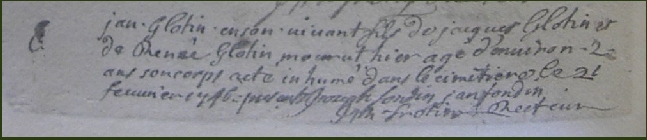 jan Glotin en son vivant fils de jacques Glotin et
de Renée Glotin mourut hier agé d'environ 2
ans son corps a eté inhumé dans le cimetiere le 21
feuvrier 1746 presents joseph jan
Recteur